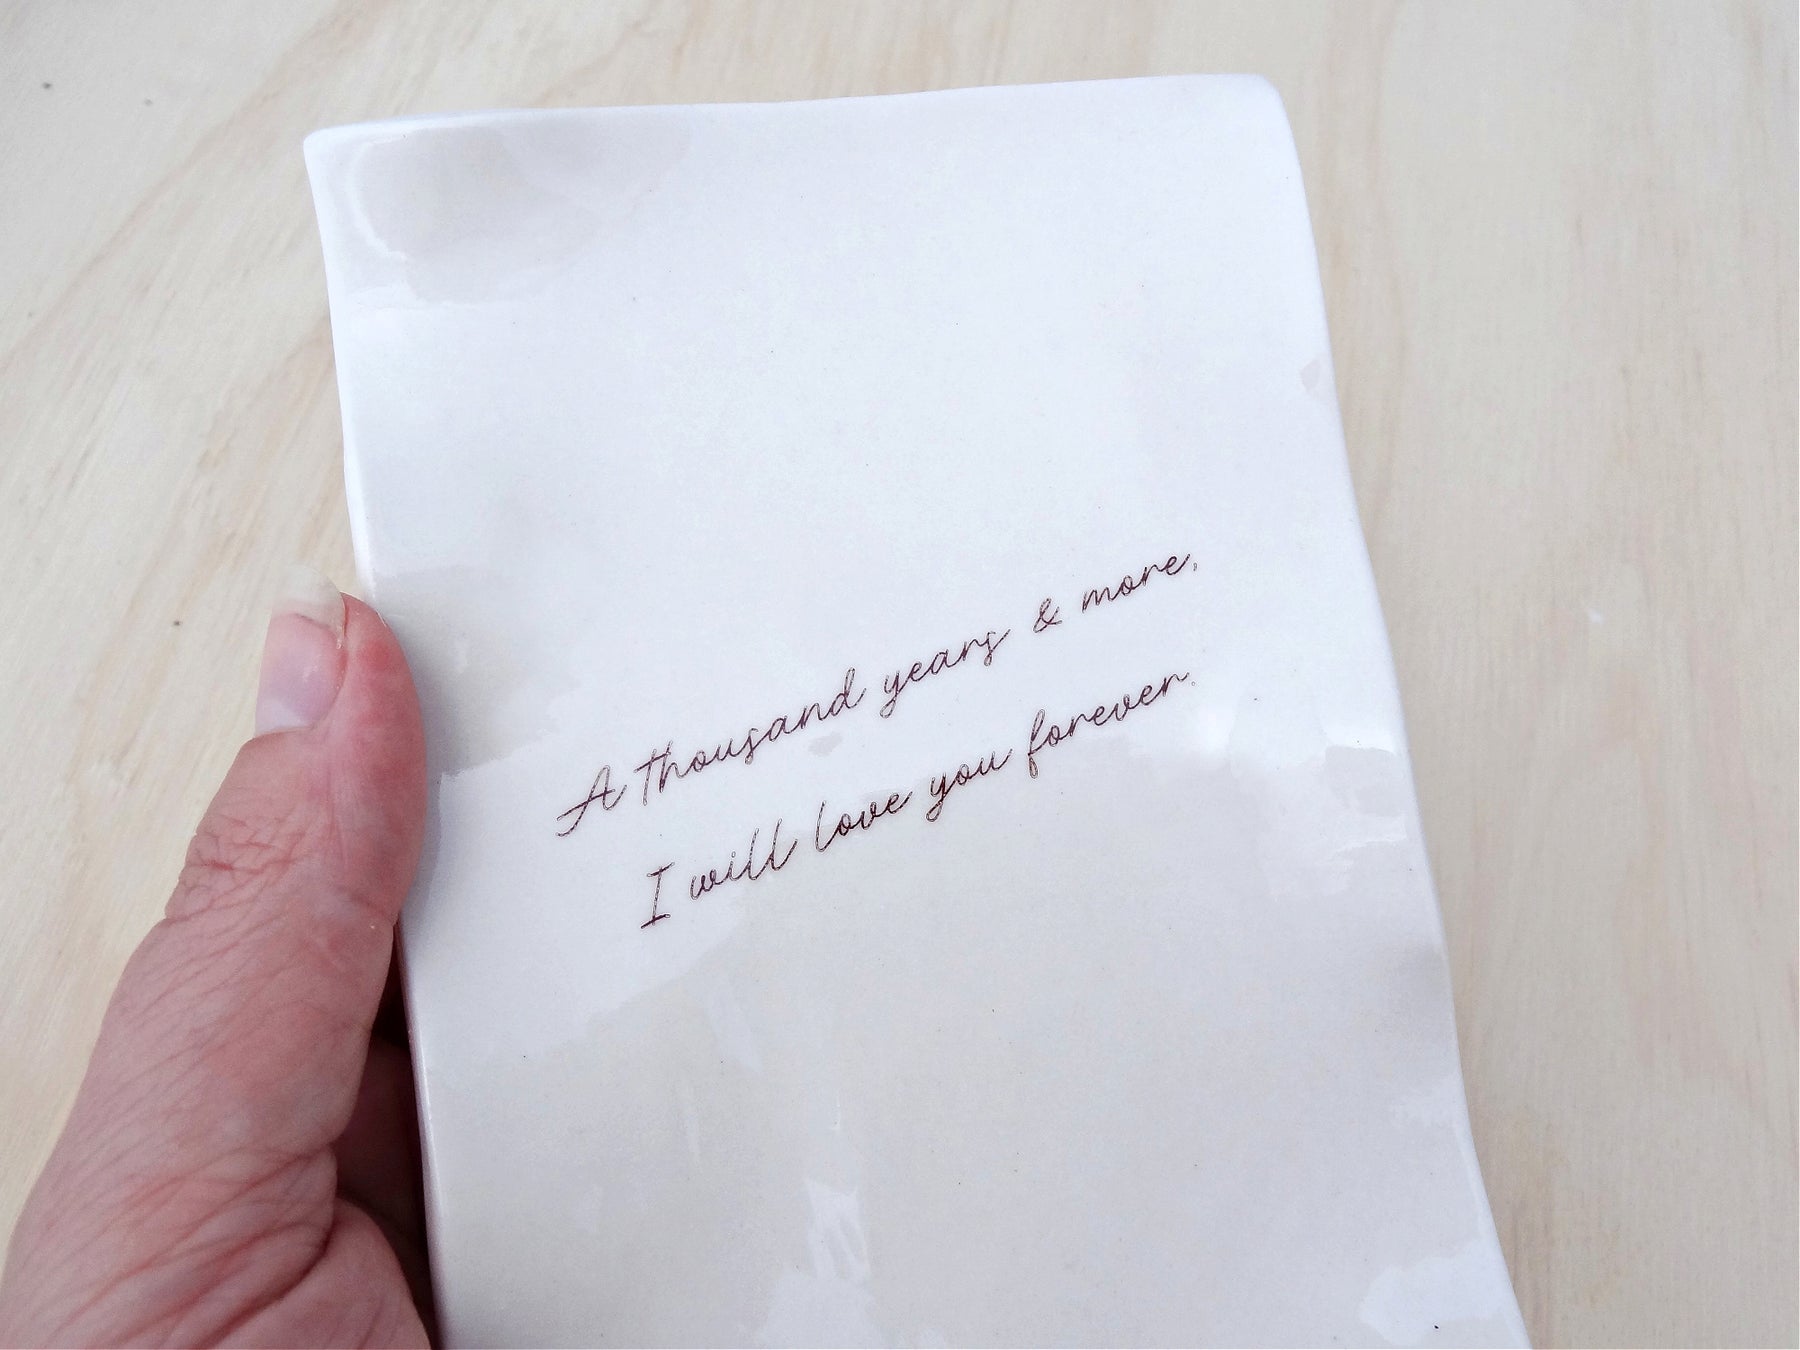 A thousand years & more,
I will love you forever.